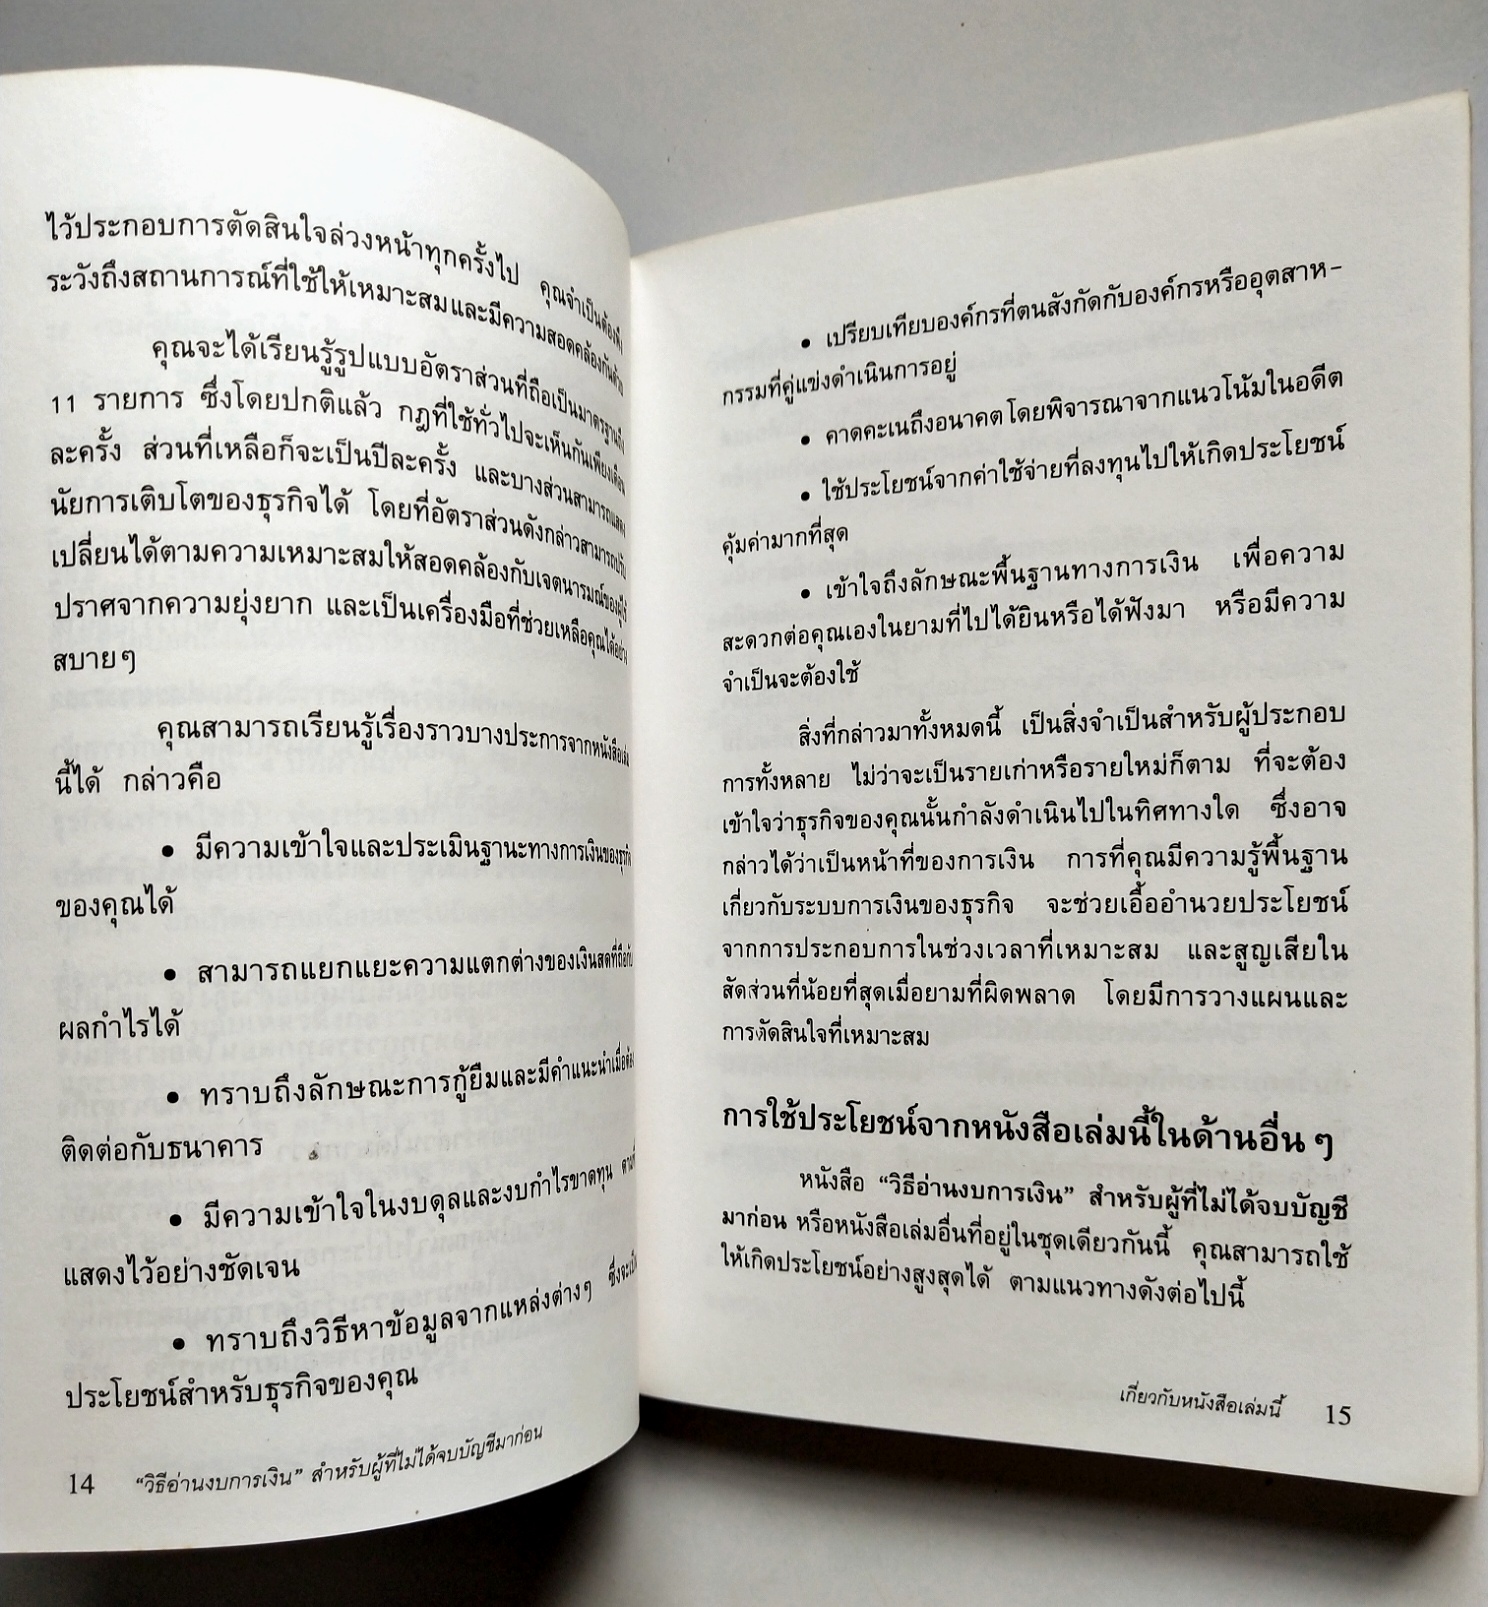 ไว้ประกอบการตัดสินใจล่วงหน้าทุกครั้งไป คุณจำเป็นต้องพึง
ระวังถึงสถานการณ์ที่ใช้ให้เหมาะสมและมีความสอดคล้องกันด้วย
คุณจะได้เรียนรู้รูปแบบอัตราส่วนที่ถือเป็นมาตรฐานถึง
11 รายการ ซึ่งโดยปกติแล้ว กฎที่ใช้ทั่วไปจะเห็นกันเพียงเดือน
ละครั้ง ส่วนที่เหลือก็จะเป็นปีละครั้ง และบางส่วนสามารถแสดง
นัยการเติบโตของธุรกิจได้ โดยที่อัตราส่วนดังกล่าวสามารถปรับ
เปลี่ยนได้ตามความเหมาะสมให้สอดคล้องกับเจตนารมณ์ของผู้ใช้
ปราศจากความยุ่งยาก และเป็นเครื่องมือที่ช่วยเหลือคุณได้อย่าง
สบายๆ
คุณสามารถเรียนรู้เรื่องราวบางประการจากหนังสือเล่ม
นี้ได้ กล่าวคือ
• มีความเข้าใจและประเมินฐานะทางการเงินของธุรกิจ
ของคุณได้
• สามารถแยกแยะความแตกต่างของเงินสดที่ถือกับ
ผลกำไรได้
• ทราบถึงลักษณะการกู้ยืมและมีคำแนะนำเมื่อต้อง
ติดต่อกับธนาคาร
• มีความเข้าใจในงบดุลและงบกำไรขาดทุน ตามที่
แสดงไว้อย่างชัดเจน
• ทราบถึงวิธีหาข้อมูลจากแหล่งต่างๆ ซึ่งจะเป็น
ประโยชน์สำหรับธุรกิจของคุณ
14 “วิธีอ่านงบการเงิน” สำหรับผู้ที่ไม่ได้จบบัญชีมาก่อน
• เปรียบเทียบองค์กรที่ตนสังกัดกับองค์กรหรืออุตสาห-
กรรมที่คู่แข่งดำเนินการอยู่
• คาดคะเนถึงอนาคตโดยพิจารณาจากแนวโน้มในอดีต
• ใช้ประโยชน์จากค่าใช้จ่ายที่ลงทุนไปให้เกิดประโยชน์
คุ้มค่ามากที่สุด
• เข้าใจถึงลักษณะพื้นฐานทางการเงิน เพื่อความ
สะดวกต่อคุณเองในยามที่ไปได้ยินหรือได้ฟังมา หรือมีความ
จำเป็นจะต้องใช้
สิ่งที่กล่าวมาทั้งหมดนี้ เป็นสิ่งจำเป็นสำหรับผู้ประกอบ
การทั้งหลาย ไม่ว่าจะเป็นรายเก่าหรือรายใหม่ก็ตาม ที่จะต้อง
เข้าใจว่าธุรกิจของคุณนั้นกำลังดำเนินไปในทิศทางใด ซึ่งอาจ
กล่าวได้ว่าเป็นหน้าที่ของการเงิน การที่คุณมีความรู้พื้นฐาน
เกี่ยวกับระบบการเงินของธุรกิจ จะช่วยเอื้ออำนวยประโยชน์
จากการประกอบการในช่วงเวลาที่เหมาะสม และสูญเสียใน
สัดส่วนที่น้อยที่สุดเมื่อยามที่ผิดพลาด โดยมีการวางแผนและ
การตัดสินใจที่เหมาะสม
การใช้ประโยชน์จากหนังสือเล่มนี้ในด้านอื่นๆ
หนังสือ “วิธีอ่านงบการเงิน” สำหรับผู้ที่ไม่ได้จบบัญชี
มาก่อน หรือหนังสือเล่มอื่นที่อยู่ในชุดเดียวกันนี้ คุณสามารถใช้
ให้เกิดประโยชน์อย่างสูงสุดได้ ตามแนวทางดังต่อไปนี้
เกี่ยวกับหนังสือเล่มนี้ 15